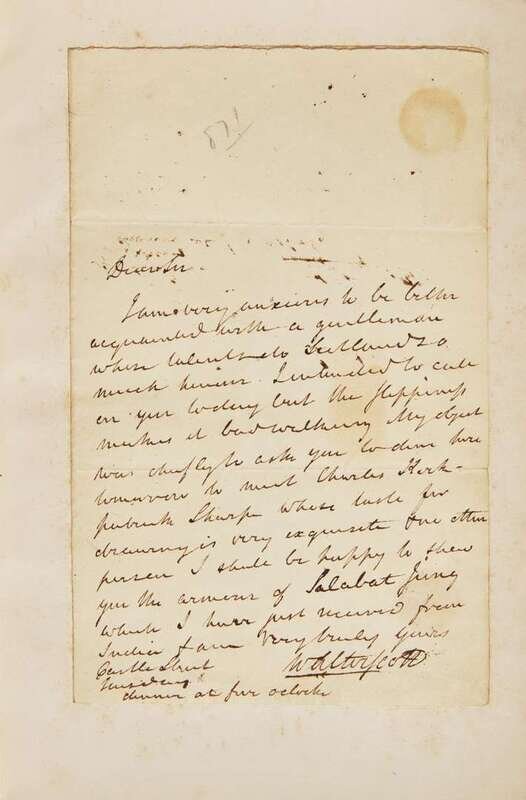 871
Dear Sir.
I am very anxious to be better
acquainted with a gentleman
whose talents do Scotland so
much honour. I intended to call
on you today but the slippiness
makes it bad walking My object
was chiefly to ask you to dine here
tomorrow to meet Charles Kirk-
patrick Sharpe whose taste for
drawing is very exquisite One other
person I shall be happy to shew
you the armour of Salabat Jung
which I have just received from
India & am very truly yours
Castle Street Walter Scott
Tuesday
dinner at five oclock